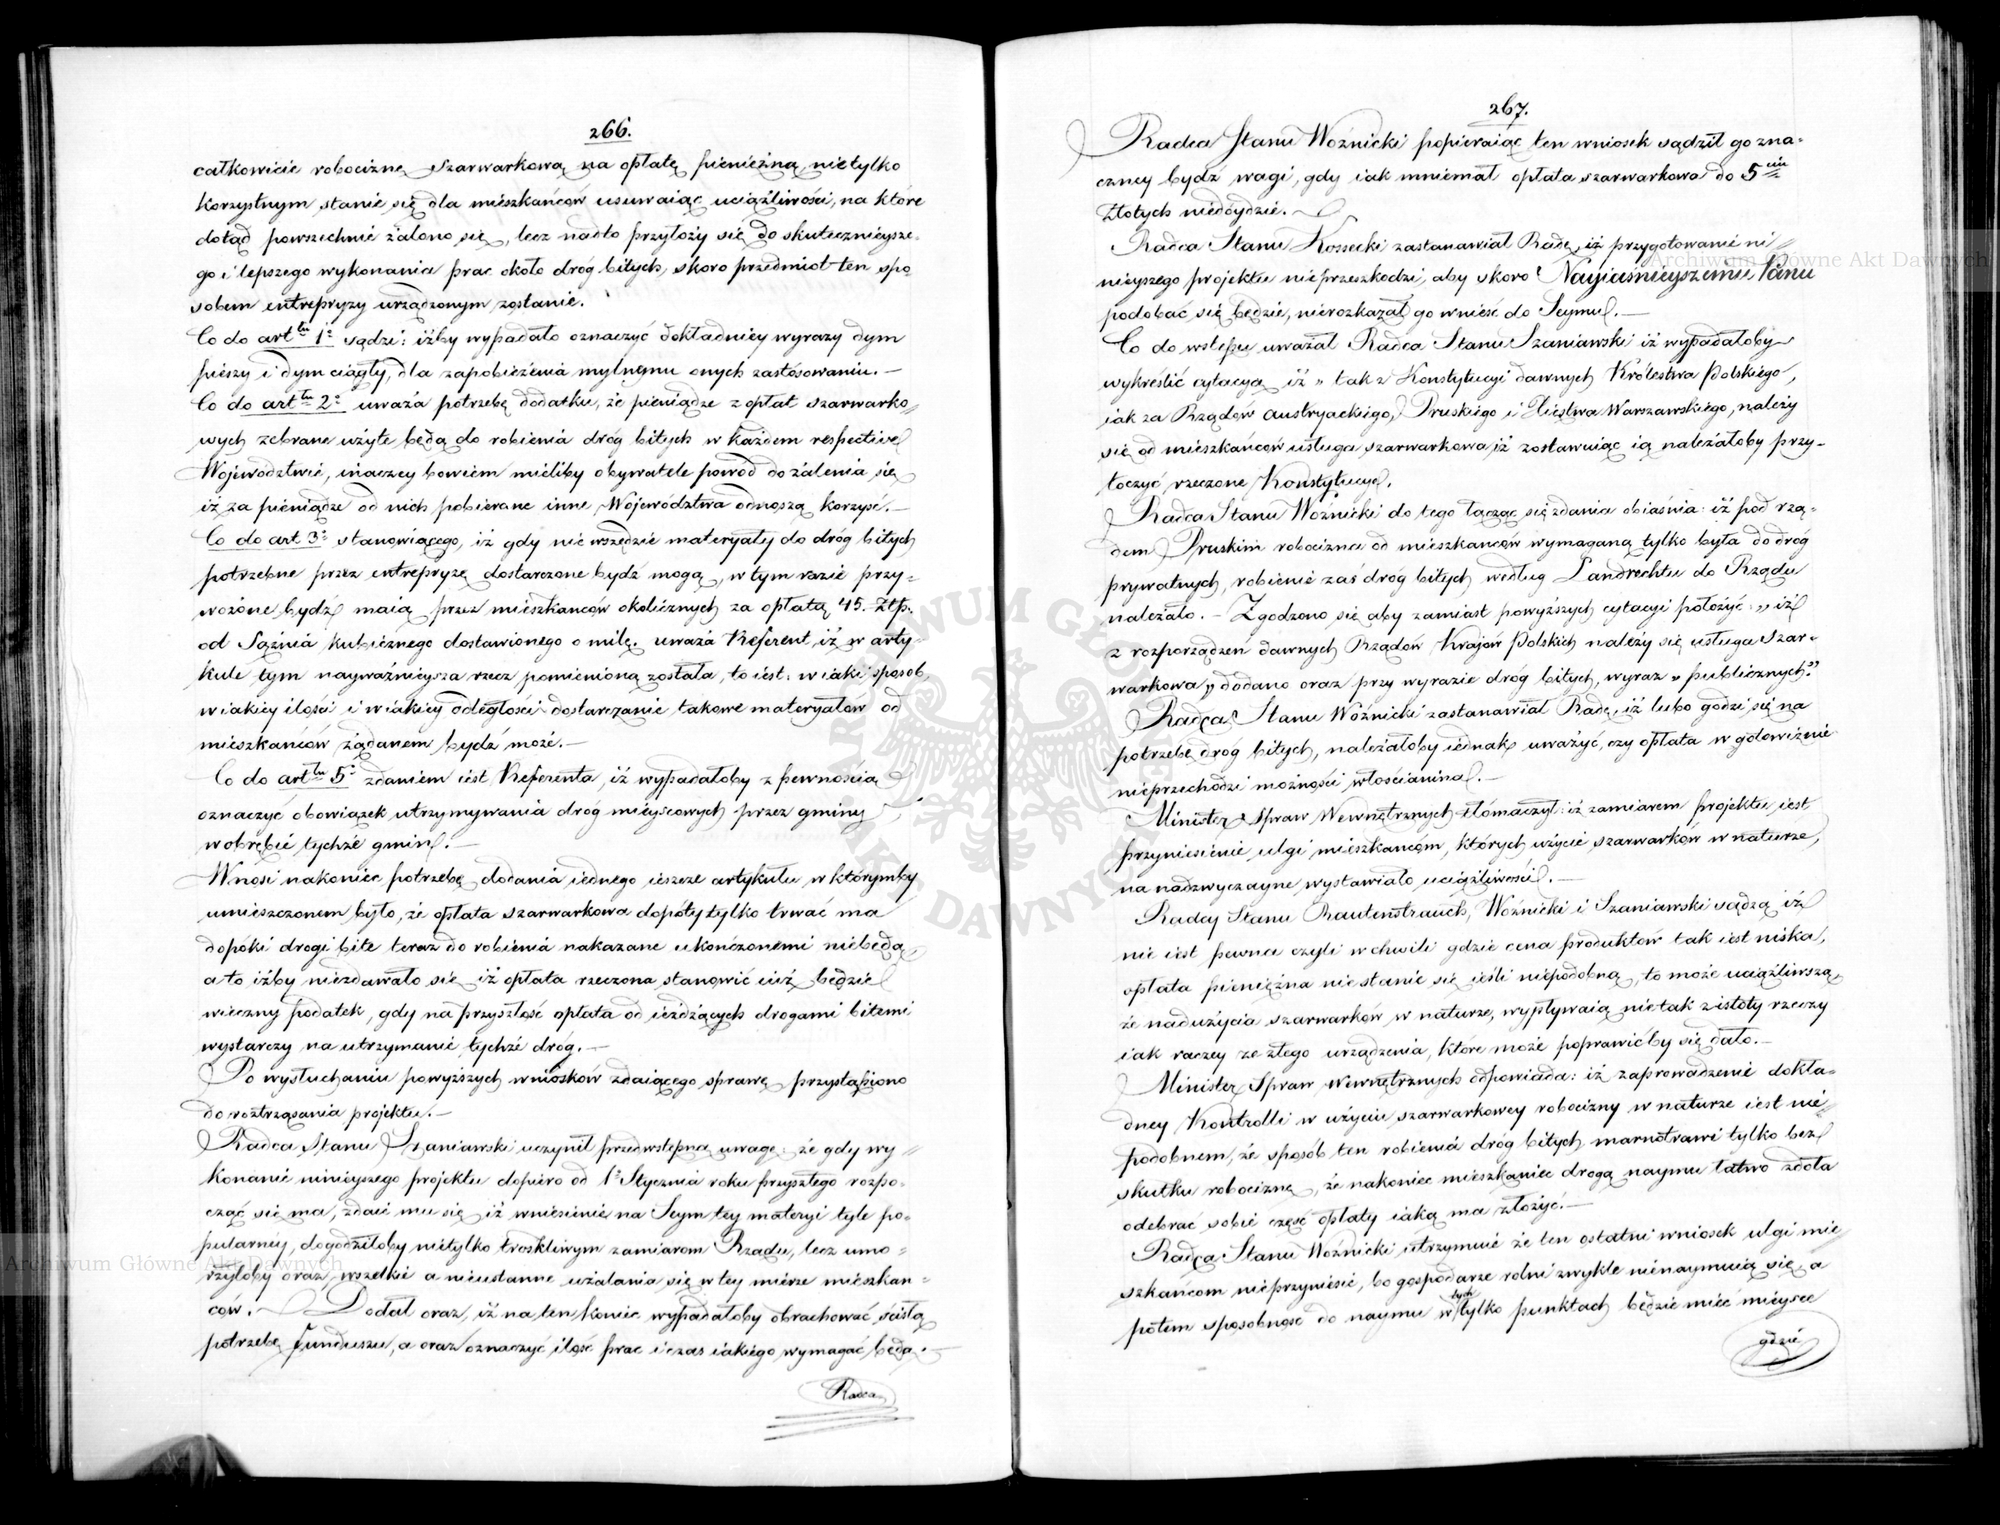 266.
całkowicie robociznę szarwarkową na opłatę pieniężną, nietylko
korzystnym stanie się dla mieszkańców usuwaiąc uciążliwości, na które
dotąd powszechnie żalono się, lecz nadto przyłoży się do skutecznieysze-
go i lepszego wykonania prac około dróg bitych, skoro przedmiot ten spo-
sobem entrepryzy urządzonym zostanie.
Co do art tu 1° sądzi: iżby wypadało oznaczyć dokładniey wyrazy dym
pieszy i dym ciągły, dla zapobieżenia mylnemu onych zastosowaniu. —
Co do art tu 2° uważa potrzebę dodatku, że pieniądze z opłat szarwarko-
wych zebrane użyte będą do robienia dróg bitych w każdem respective
Województwie, inaczey bowiem mieliby obywatele powód do żalenia się
iż za pieniądze od nich pobierane inne Województwa odnoszą korzyść. —
Co do art 3° stanowiącego, iż gdy nie wszędzie materyały do dróg bitych
potrzebne przez entrepryzę dostarczone bydź mogą, w tym razie przy-
wożone bydź maią przez mieszkańców okolicznych za opłatą 45. Złp.
od Sążnia kubicznego dostawionego o milę. uważa Referent, iż w arty-
kule tym nayważnieysza rzecz, pominioną została, to iest: w iaki sposób,
w iakiey ilości i w iakiey odległości dostarczanie takowe materyałów od
mieszkańców żądanem bydź może. —
Co do art tu 5° zdaniem iest Referenta, iż wypadałoby z pewnością
oznaczyć obowiązek utrzymywania dróg mieyscowych przez gminy
w obrębie tychże gmin. —
Wnosi nakoniec potrzebę dodania iednego ieszcze artykułu w którymby
umieszczonem było, że opłata szarwarkowa dopóty tylko trwać ma
dopóki drogi bite teraz do robienia nakazane ukończonemi niebędą,
a to iżby niezdawało się iż opłata rzeczona stanowić iuż będzie
wieczny podatek, gdy na przyszłość opłata od ieżdżących drogami bitemi
wystarczy na utrzymanie tychże dróg. —
Po wysłuchaniu powyższych wniosków zdaiącego sprawę przystąpiono
do roztrząsania projektu. —
Radca Stanu Szaniawski uczynił przedwstępną uwagę: że gdy wy-
konanie ninieyszego projektu dopiero od 1° Stycznia roku przyszłego rozpo-
cząć się ma, zdaie mu się iż wniesienie na Seym tey materyi tyle po-
pularney, dogodziłoby nietylko troskliwym zamiarom Rządu, lecz umo-
rzyłoby oraz wszelkie a nieustanne użalania się w tey mierze mieszkań-
ców. — Dodał oraz, iż na ten koniec wypadałoby obrachować ścisłą
potrzebę funduszu, a oraz oznaczyć ilość prac i czas iakiego wymagać będą. —
Radca
267.
Radca Stanu Woźnicki popieraiąc ten wniosek sądził go zna-
czney bydź wagi, gdy iak mniemał opłata szarwarkowa do 5 ciu
Złotych niedóydzie. —
Radca Stanu Kossecki zastanawiał Radę, iż przygotowanie ni-
nieyszego projektu nieprzeszkodzi, aby skoro Nayiaśnieyszemu Panu
podobać się będzie, nierozkazał go wnieść do Seymu. —
Co do wstępu uważał Radca Stanu Szaniawski iż wypadałoby
wykreślić cytacyą iż „ tak z Konstytucyi dawnych Królestwa Polskiego,
iak za Rządów Austryackiego, Pruskiego i Xięstwa Warszawskiego, należy
się od mieszkańców usługa szarwarkowa, iż zostawuiąc ią należałoby przy-
toczyć rzeczone Konstytucye.
Radca Stanu Woźnicki do tego łącząc się zdania obiaśnia: iż pod rzą-
dem Pruskim robocizna od mieszkańców wymaganą tylko była do dróg
prywatnych, robienie zaś dróg bitych według Landrechtu do Rządu
należało. — Zgodzono się aby zamiast powyższych cytacyi położyć: „ iż
z rozporządzeń dawnych Rządów Krajów Polskich należy się usługa szar-
warkowa „ dodano oraz przy wyrazie dróg bitych, wyraz „ publicznych."
Radca Stanu Woźnicki zastanawiał Radę, iż lubo godzi się na
potrzebę dróg bitych, należałoby iednak uważyć, czy opłata w gotowiźnie
nieprzechodzi możności włościanina. —
Minister Spraw Wewnętrznych tłómaczył: iż zamiarem projektu iest
przyniesienie ulgi mieszkańcom, których użycie szarwarków w naturze,
na nadzwyczayne wystawiało uciążliwości. —
Radcy Stanu Rautenstrauch, Woźnicki i Szaniawski sądzą iż
nie iest pewna czyli w chwili gdzie cena produktów tak iest niska,
opłata pieniężna nie stanie się ieśli niepodobną, to może uciążliwszą,
że nadużycia szarwarków w naturze, wypływaią nie tak z istoty rzeczy
iak raczey ze złego urządzenia, które może poprawić by się dało. —
Minister Spraw Wewnętrznych odpowiada: iż zaprowadzenie dokła-
dney Kontrolli w użyciu szarwarkowey robocizny w naturze iest nie-
podobnem, że sposób ten robienia dróg bitych marnotrawi tylko bez
skutku robociznę, że nakoniec mieszkaniec drogą naymu łatwo zdoła
odebrać sobie część opłaty iaką ma złożyć. —
Radca Stanu Woźnicki utrzymuie że ten ostatni wniosek ulgi mie-
szkańcom nieprzyniesie, bo gospodarze rolni zwykle nienaymuią się, a
potem sposobność do naymu w tych tylko punktach będzie mieć mieysce
gdzie
ARCHIWUM GŁÓWNE AKT DAWNYCH
Archiwum Główne Akt Dawnych
Archiwum Główne Akt Dawnych